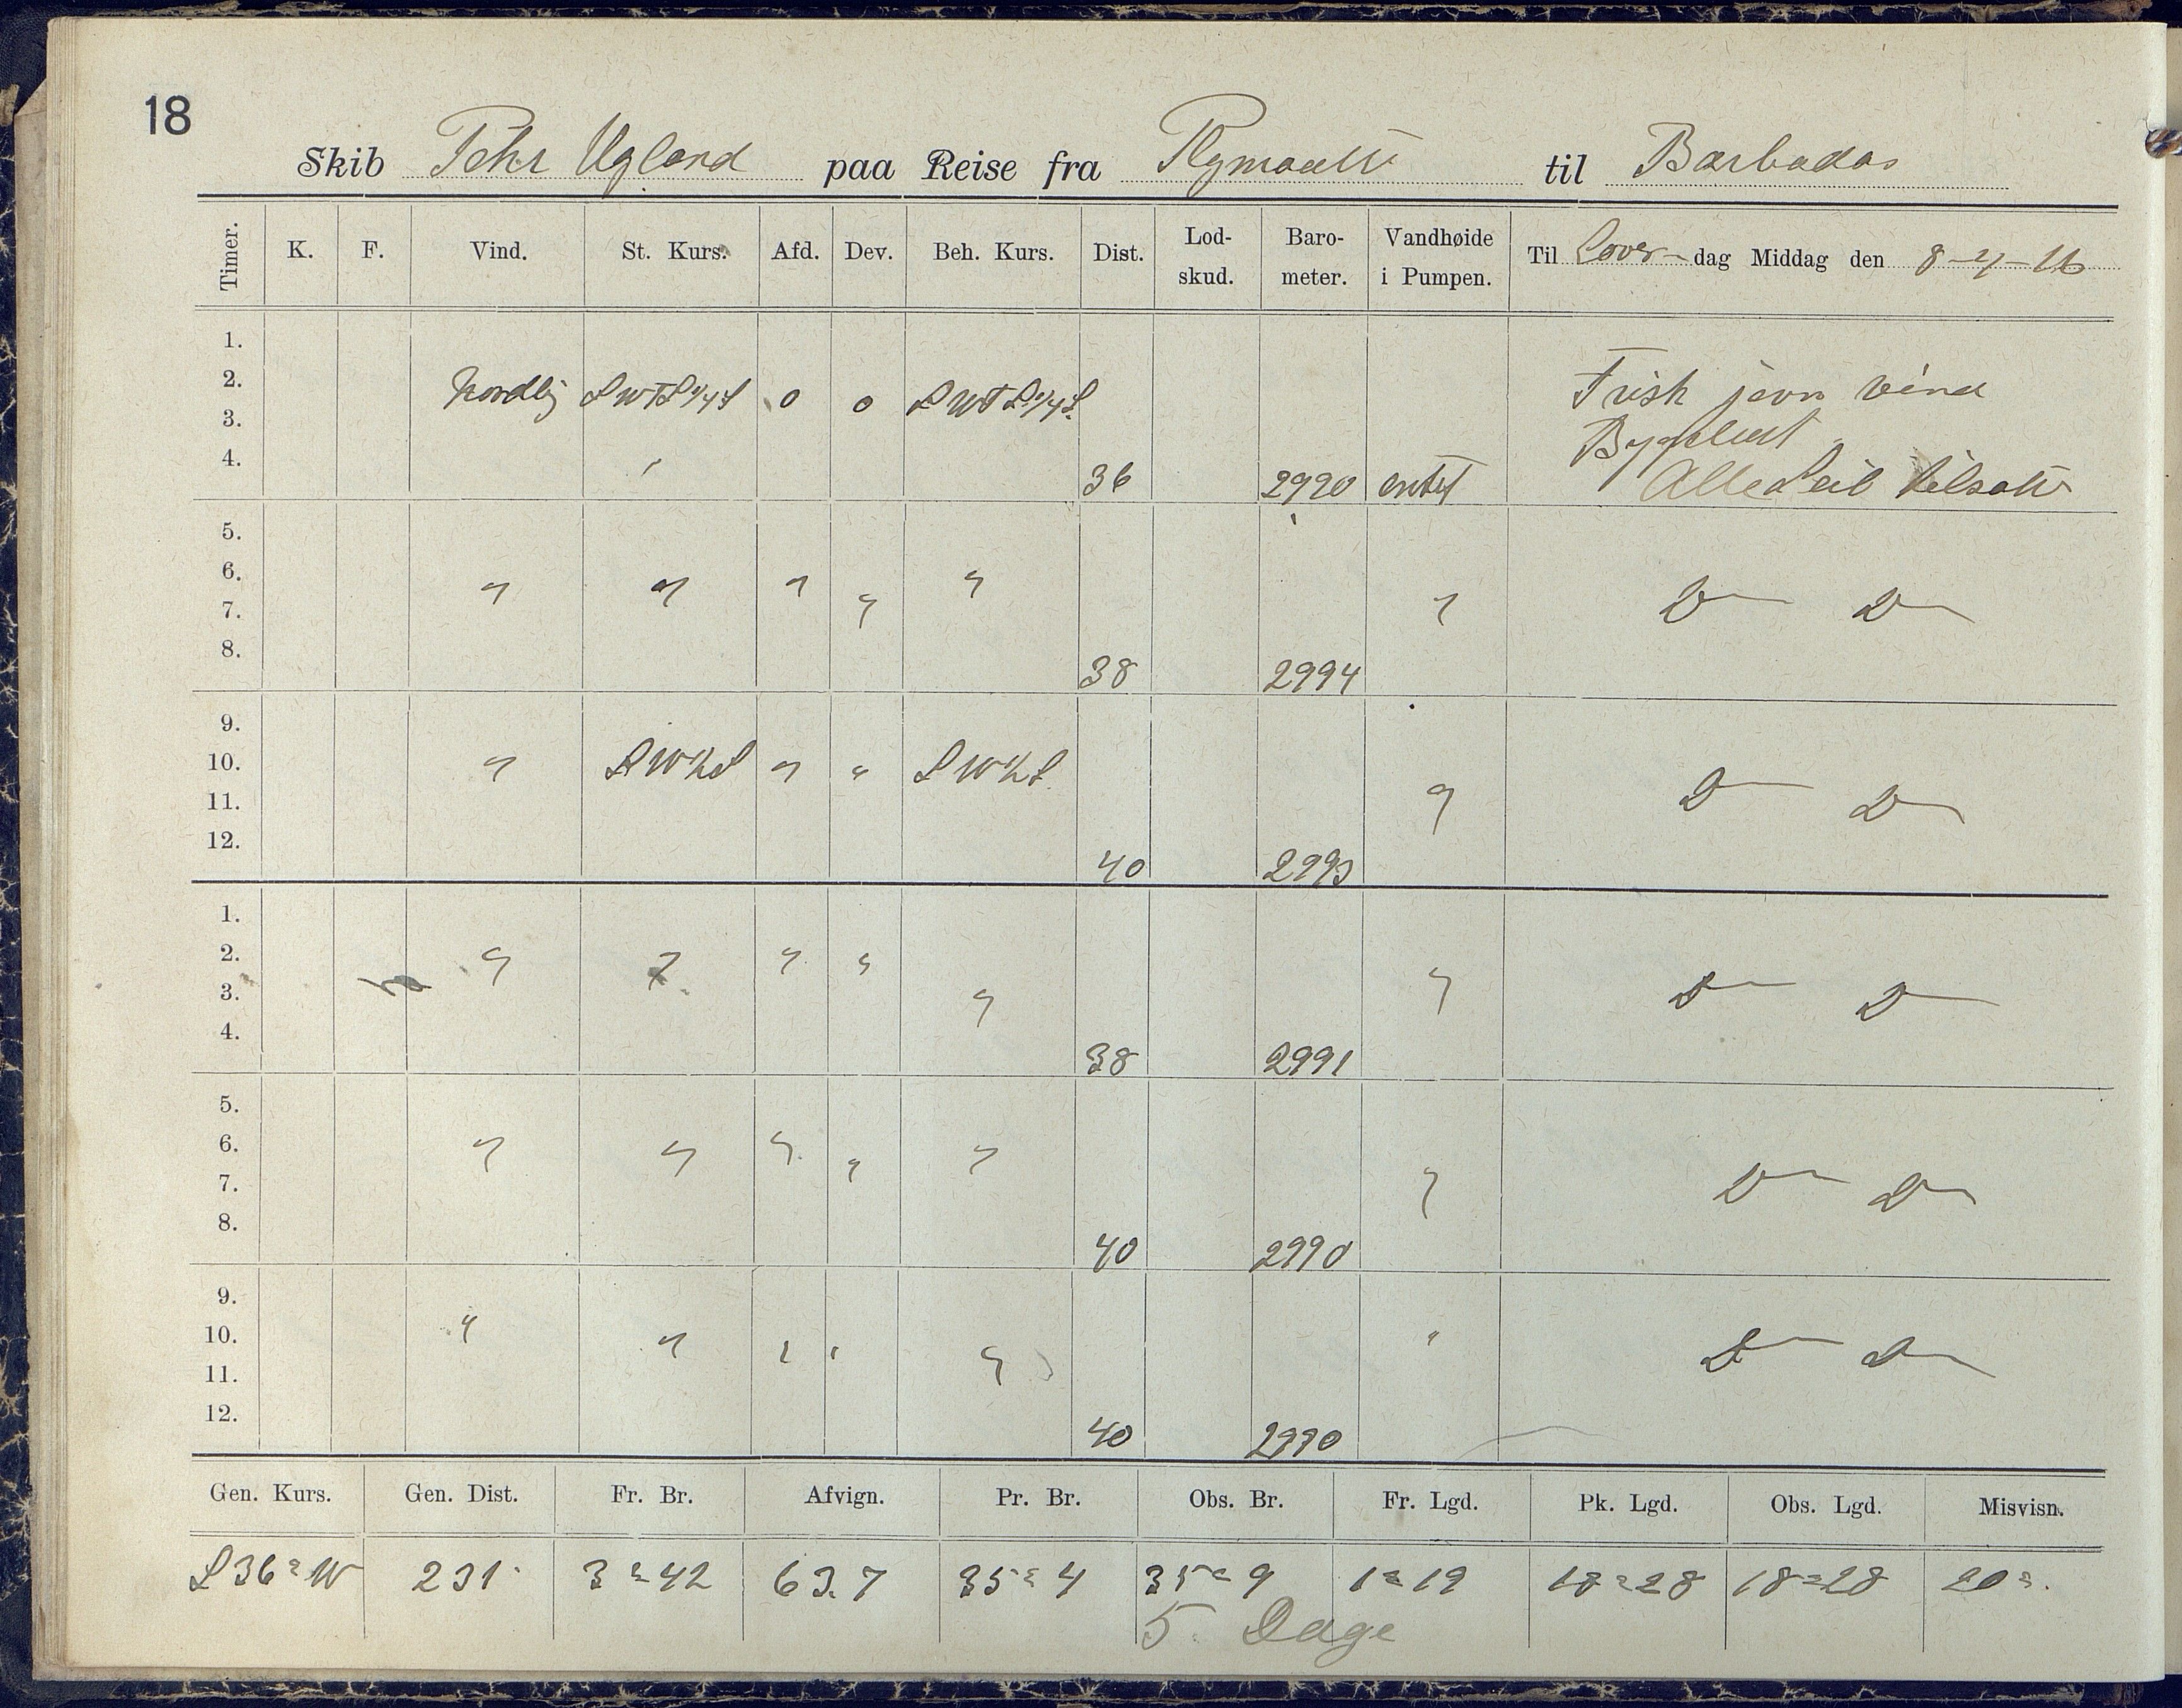 18
Skib Pehr Ugland paa Reise fra Plymouth til Barbados
Timer. K. F. Vind. St. Kurs. Afd. Dev. Beh. Kurs. Dist. Lod-skud. Baro-meter. Vandhøide i Pumpen. Til Løver-dag Middag den 8-4-16
1.
2. Nordlig SWTS 1/4 S 0 0 SWTS 1/4 S. Frisk jevn vind
3. Bygeluft
4. 36 2990 intet Alle Seil tilsatt
5.
6. " " " " "
7. " D D
8. 38 2994
9.
10. " SWKS " " SWKS
11. " D D
12. 40 2993
1.
2. " " " "
3. " " D D
4. 38 2991
5.
6. " " " " "
7. " D D
8. 40 2990
9.
10. " " " " " "
11. D D
12. 40 2990
Gen. Kurs. Gen. Dist. Fr. Br. Afvign. Pr. Br. Obs. Br. Fr. Lgd. Pk. Lgd. Obs. Lgd. Misvisn.
S36°W 231 3°42 63.7 35°4 35°9 1°19 18°28 18°28 20°.
5 Dage